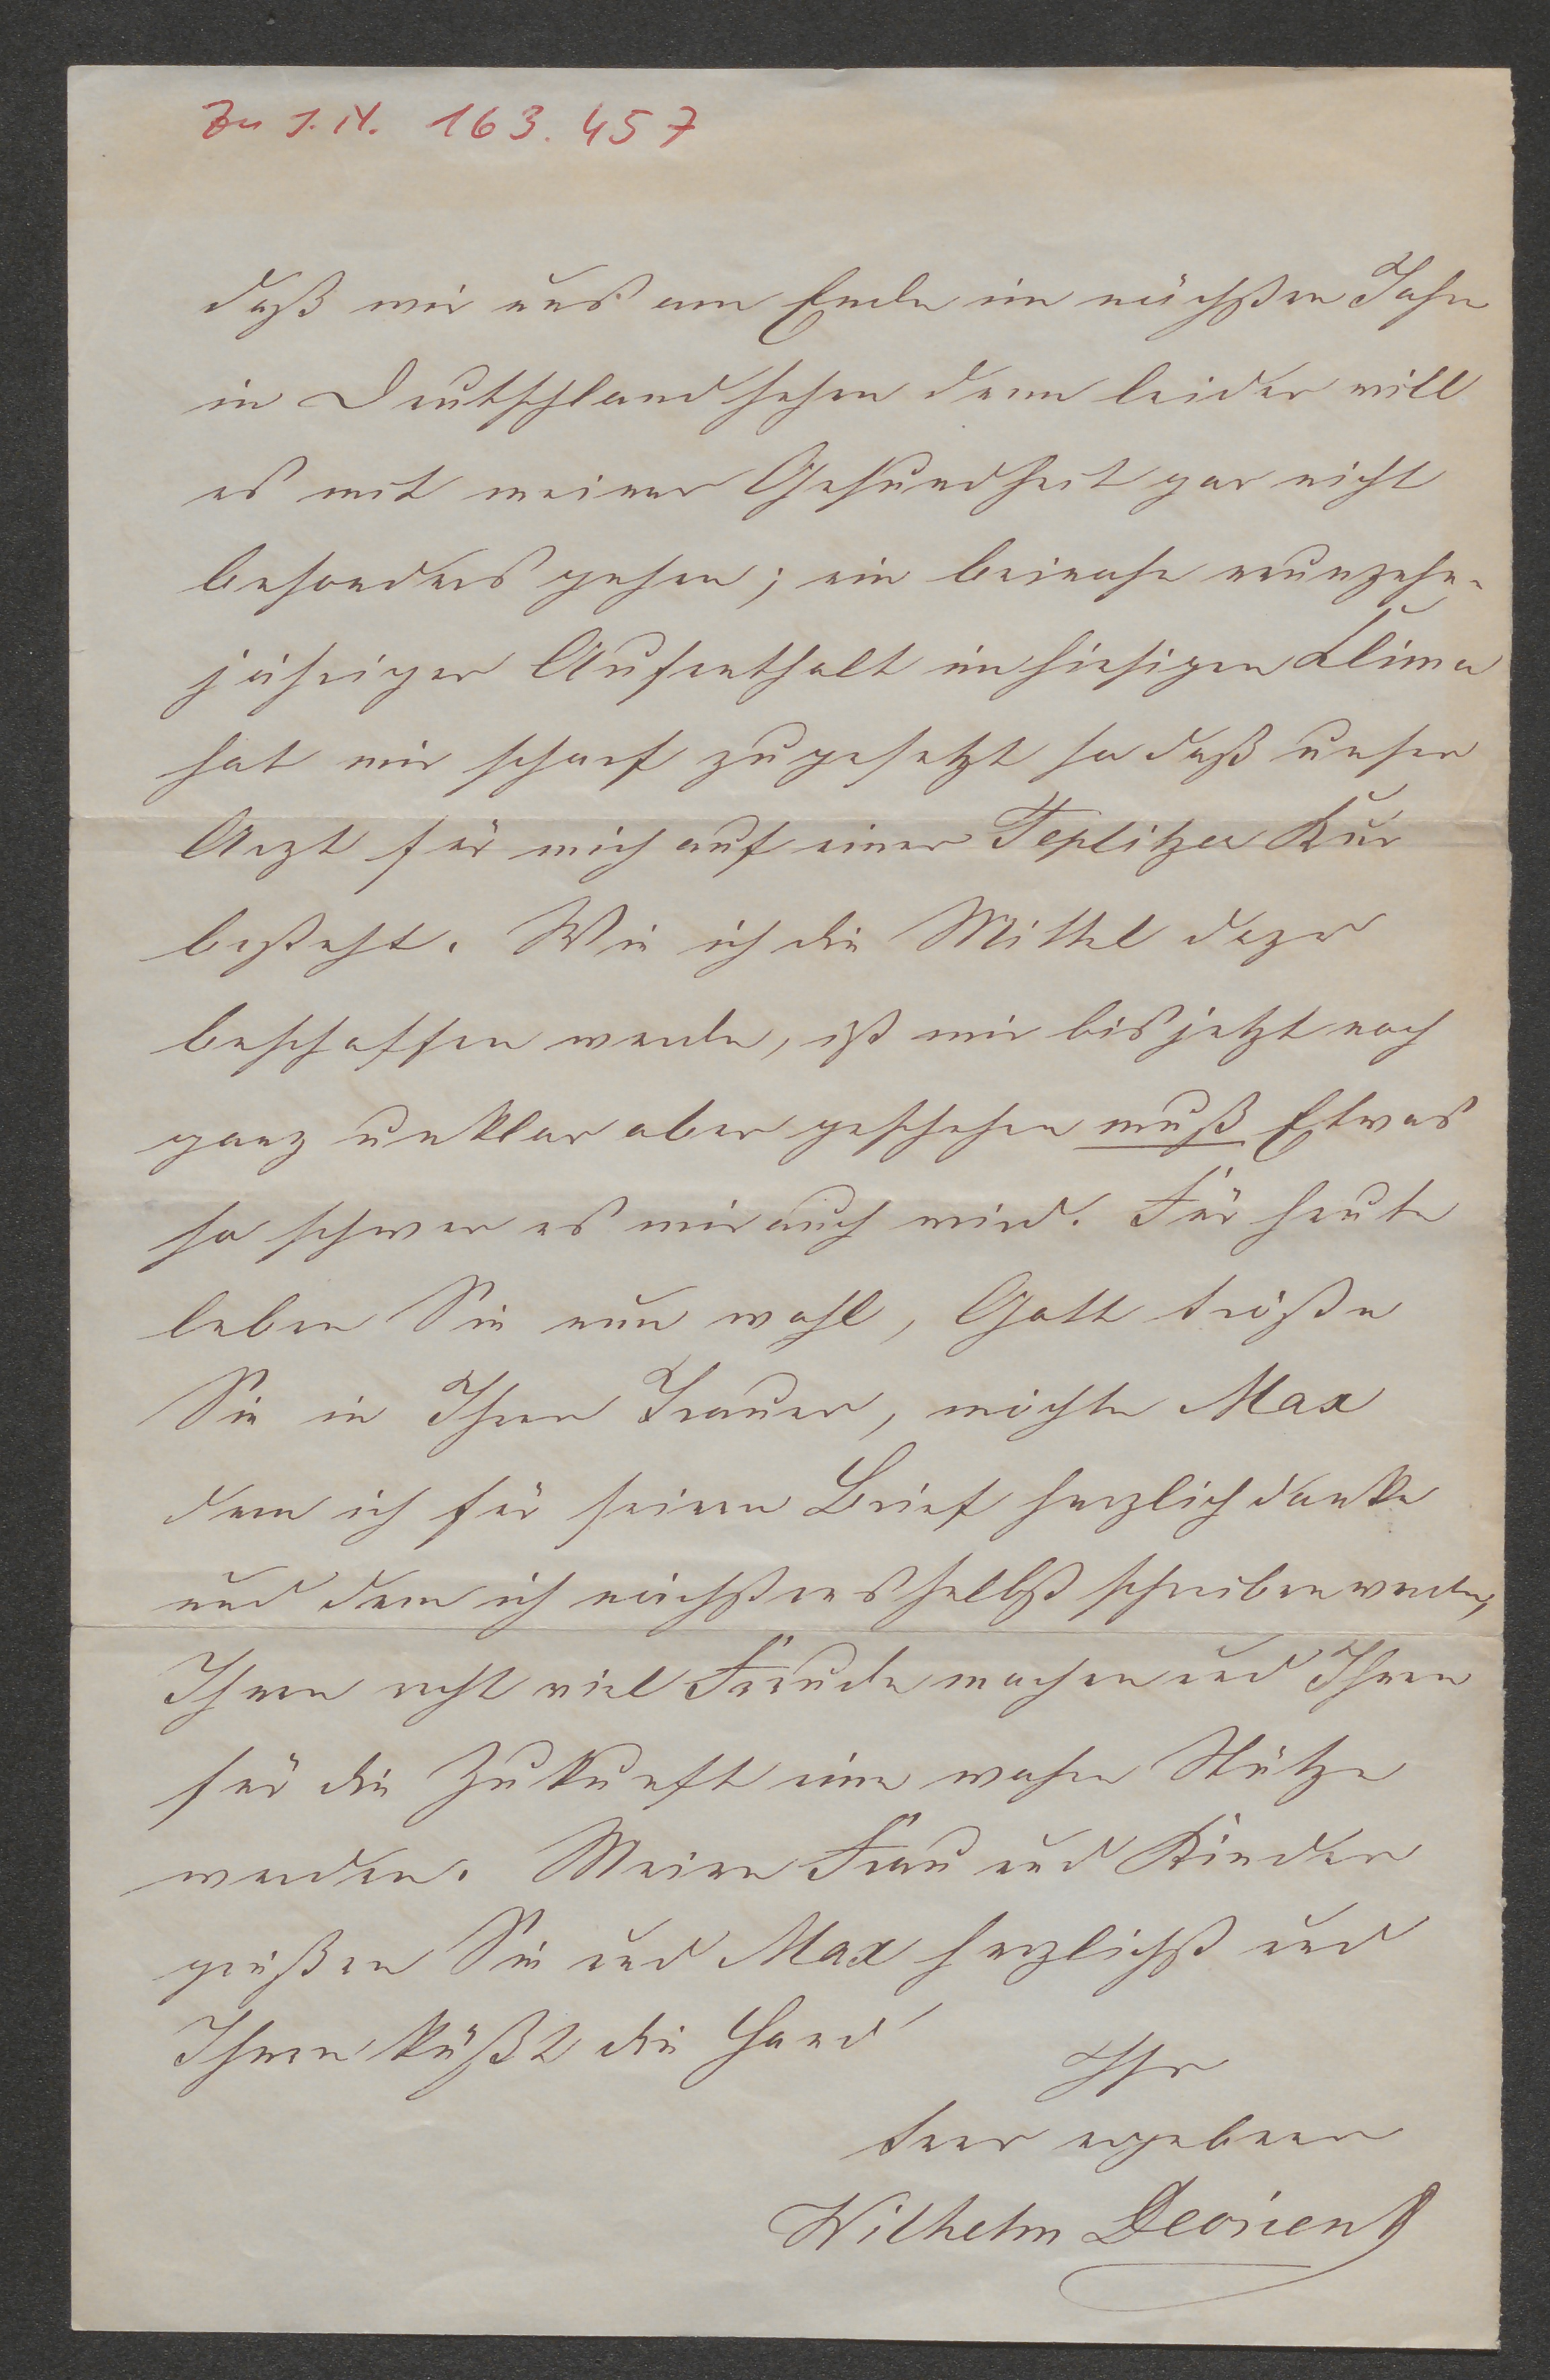 Zu I.N. 163.457
daß wir uns am Ende im nächsten Jahre
in Deutschland sehen denn leider will
es mit meiner Gesundheit gar nicht
besonders gehen; ein beinahe neunzehn-
jähriger Aufenthalt im hiesigen Klima
hat mir scharf zugesetzt so daß unser
Arzt für mich auf einer Teplitzer Kur
besteht. Wie ich die Mittel dazu
beschaffen werde, ist mir bis jetzt noch
ganz unklar aber geschehen muß Etwas
so schwer es mir auch wird. Für heute
leben Sie nun wohl, Gott tröste
Sie in Ihrer Trauer, möchte Max
dem ich für seinen Brief herzlich danke
und dem ich nächstens selbst schreiben werde,
Ihnen recht viel Freude machen und Ihnen
für die Zukunft eine wahre Stütze
werden. Meine Frau und Kinder
grüßen Sie und Max herzlichst und
Ihnen küßt die Hand
Ihr
treu ergebener
Wilhelm Devrient